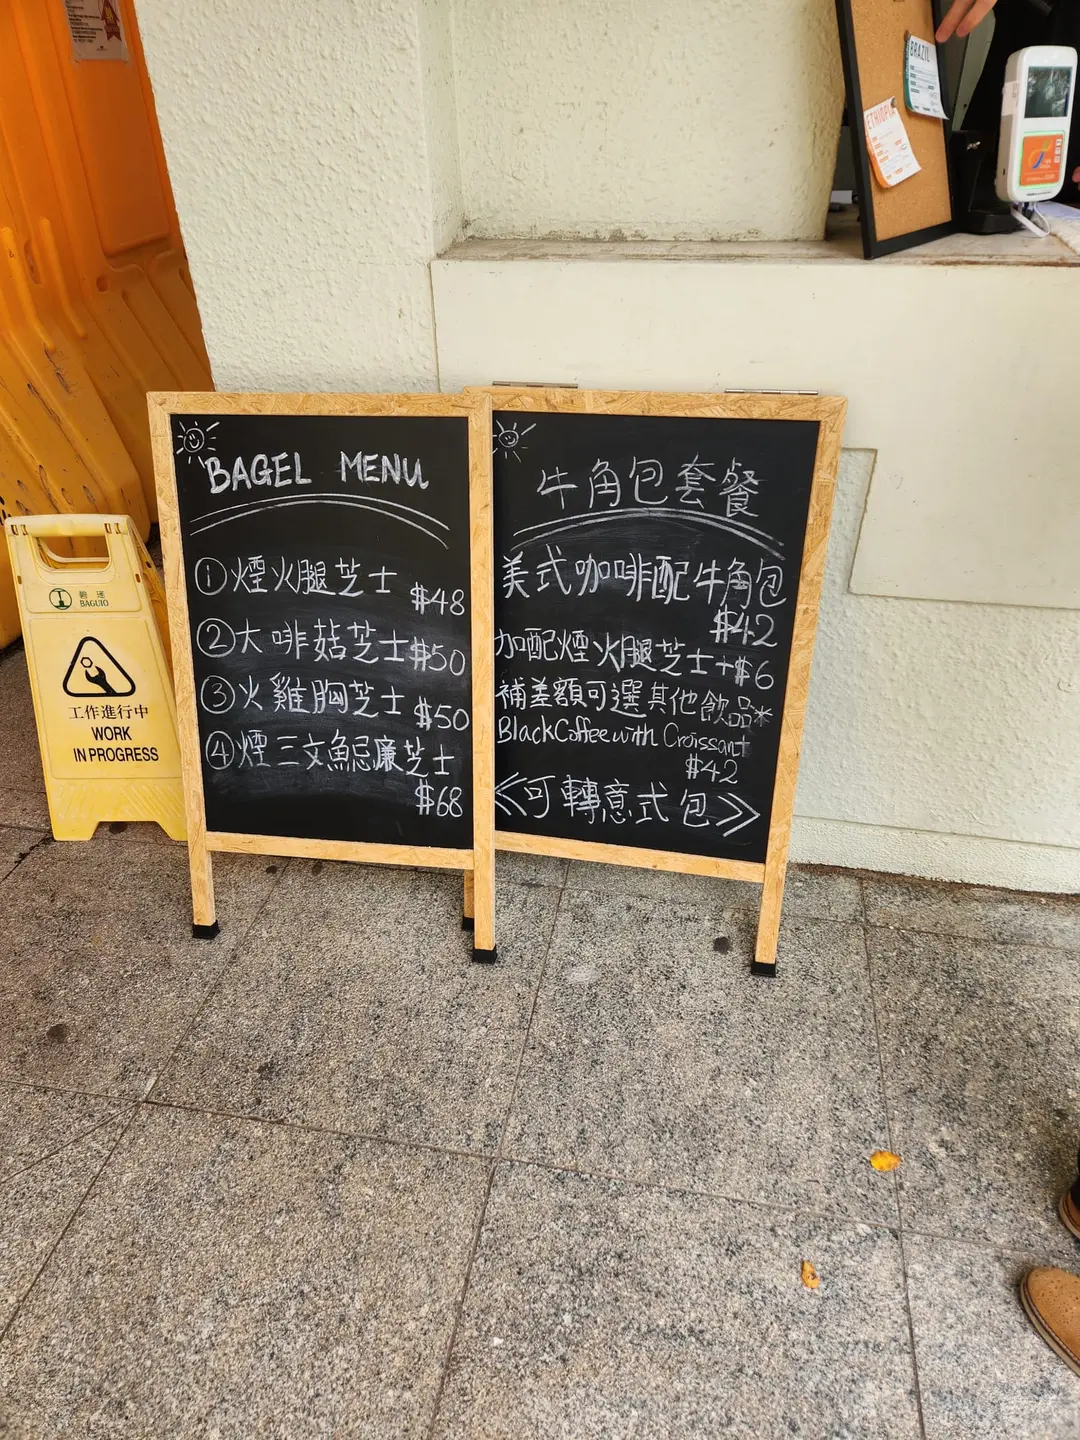 BAGEL MENU
① 煙火腿芝士 $48
② 大啡菇芝士 $50
③ 火雞胸芝士 $50
④ 煙三文魚忌廉芝士
$68
牛角包套餐
美式咖啡配牛角包
$42
加配煙火腿芝士+$6
補差額可選其他飲品*
Black Coffee with Croissant
$42
《可轉意式包》
BAGUIO
工作進行中
WORK
IN PROGRESS
BRAZIL
ETHIOPIA